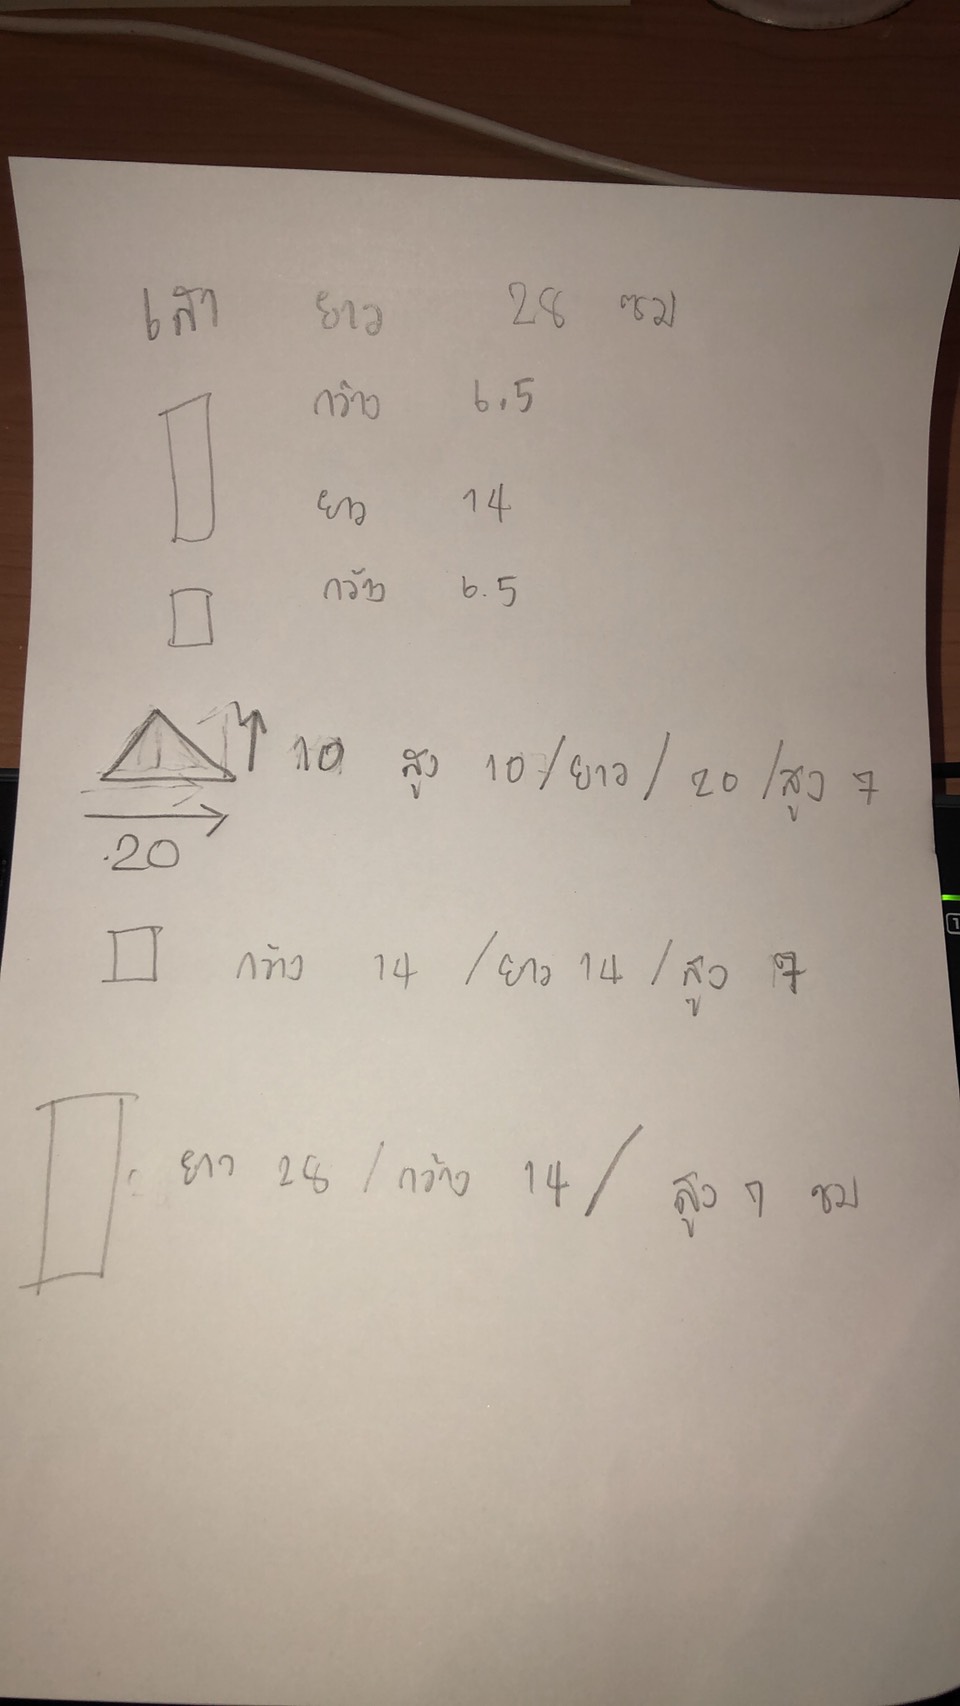 เสา ยาว 28 ซม
กว้าง 6.5
ยาว 14
กว้าง 6.5
10 สูง 10/ยาว/20/สูง 7
20
กว้าง 14/ยาว 14/สูง 7
ยาว 28/กว้าง 14/สูง 7 ซม